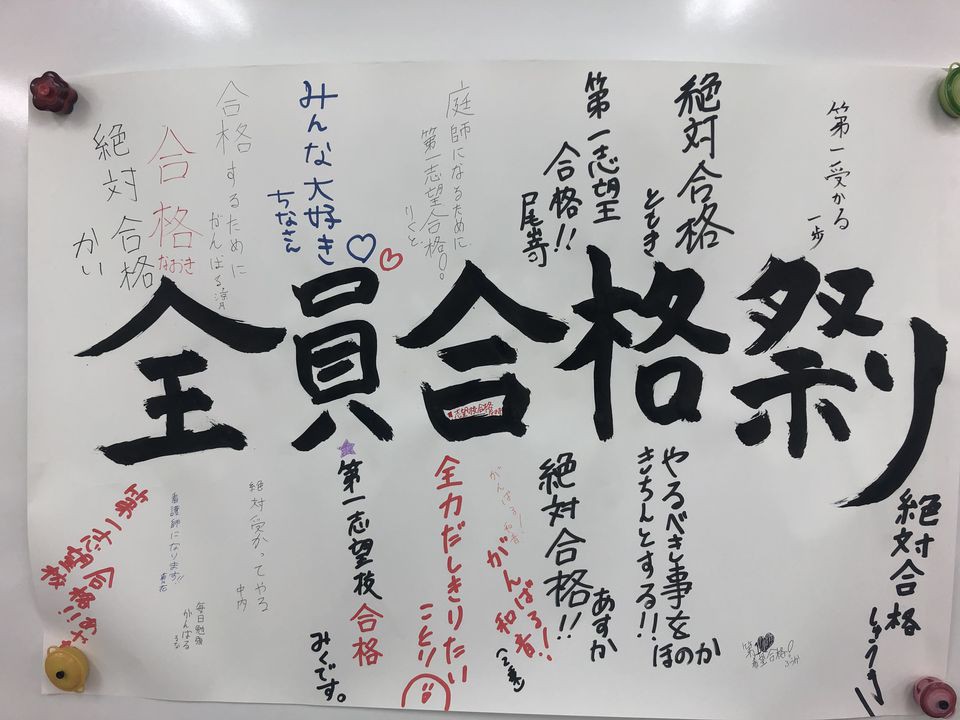 第一受かる
一歩
絶対合格
ともき
第一志望王
合格!!
尾嵜
庭師になるために
第一志望合格!!
りくと
みんな大好き
ちなさん
合格するために
がんばる
合格
なおき
絶対合格
かい
全員合格祭り
志望校合格
絶対合格
しゅうき
やるべき事を
きちんとする!!
ほのか
第1
希望合格!
絶対合格!!
あすか
がんばろ!
和者!
全力だしきりたい
ことり
第一志望技合格
みくです。
絶対受かってやる
中内
看護師になります!!
毎日勉強
がんばる
第一志望
校合格!!